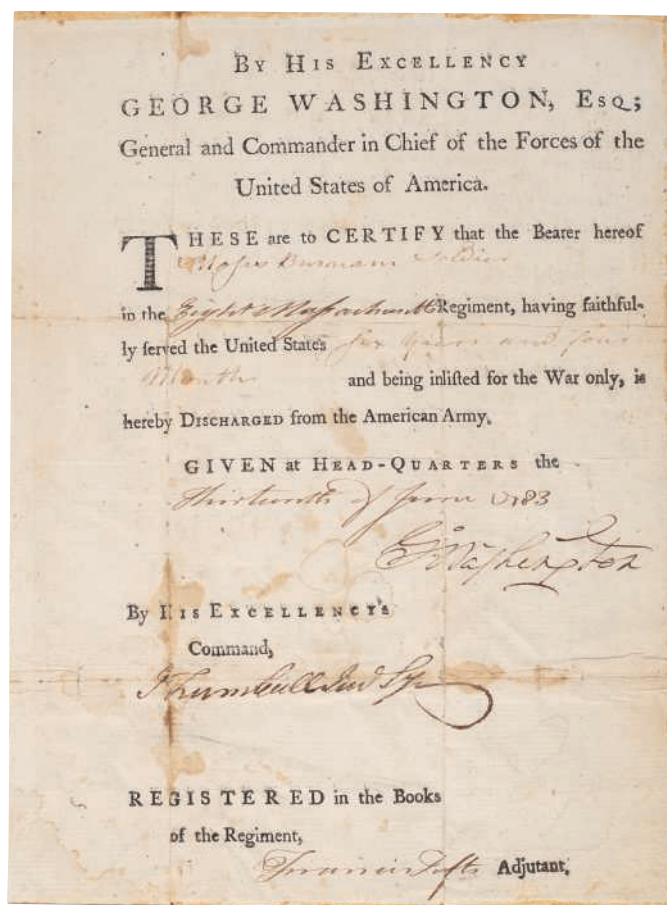 By His Excellency
GEORGE WASHINGTON, Esq;
General and Commander in Chief of the Forces of the
United States of America.
THESE are to CERTIFY that the Bearer hereof
Moses Burnam Soldier
in the Eight Massachusetts Regiment, having faithful-
ly ſerved the United States six years and four
Months and being inliſted for the War only, is
hereby Discharged from the American Army.
GIVEN at Head-Quarters the
Thirteenth of June 1783
G Washington
By His Excellency's
Command,
J Trumbull Jun Sy
REGISTERED in the Books
of the Regiment,
Francis Tufts Adjutant,